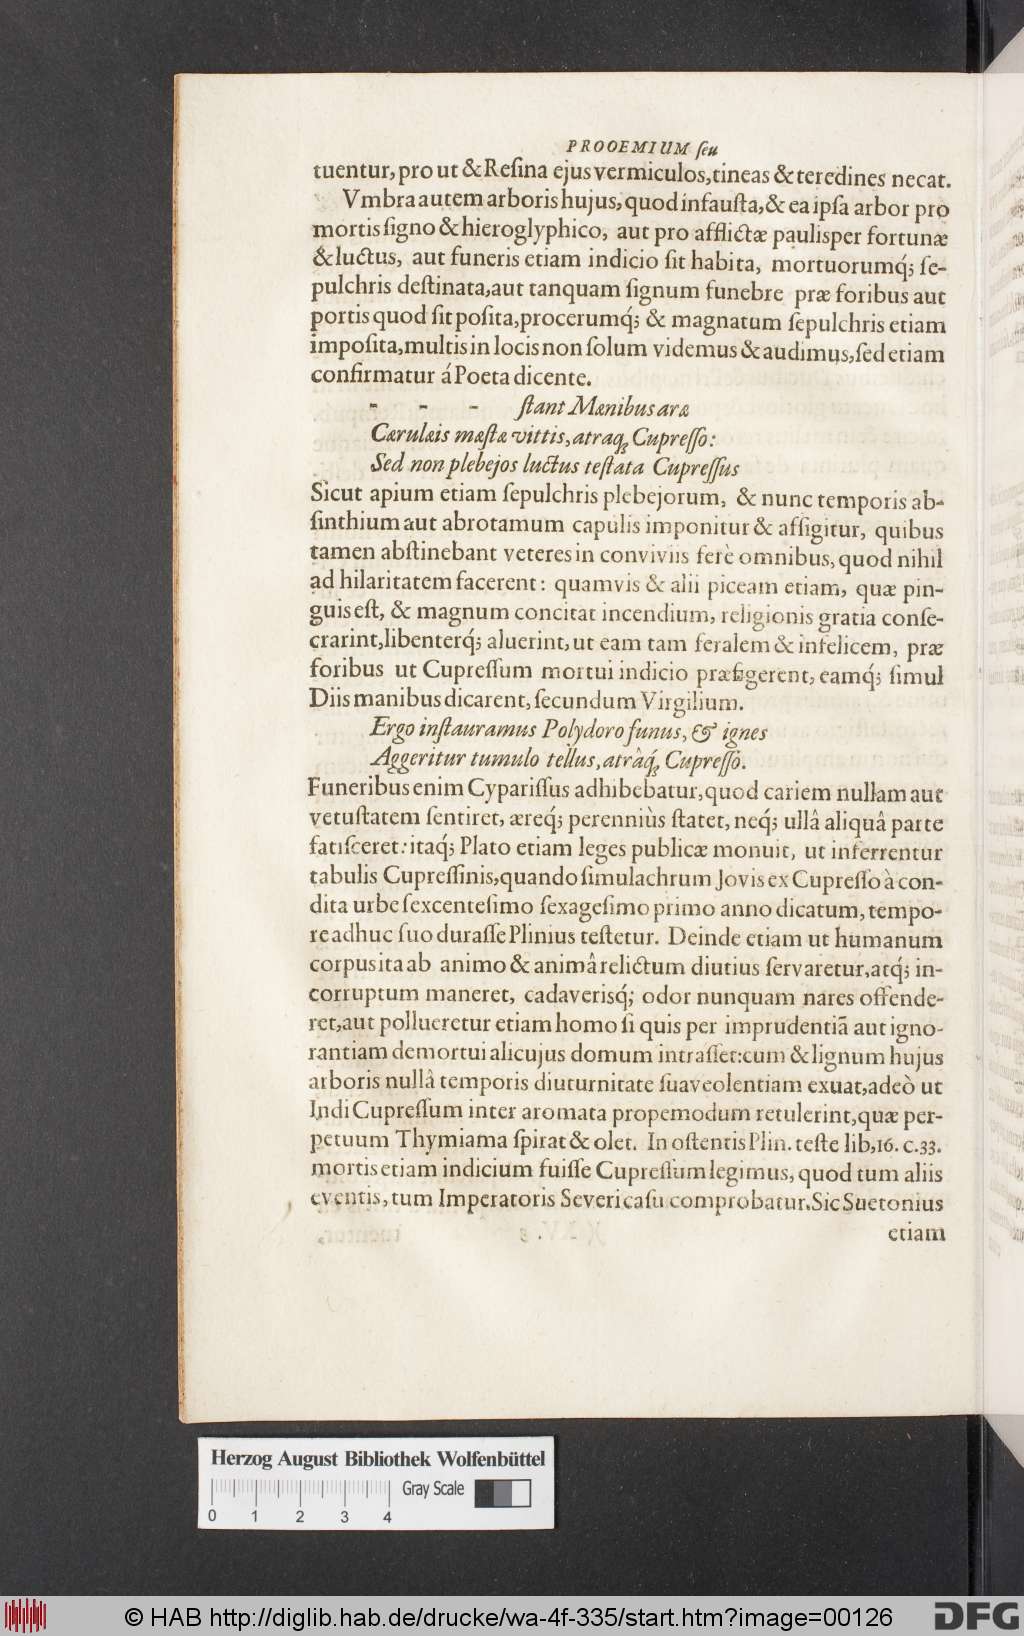 PROOEMIUM ſeu
tuentur, pro ut & Reſina ejus vermiculos, tineas & teredines necat.
Vmbra autem arboris hujus, quod infauſta, & ea ipſa arbor pro
mortis ſigno & hieroglyphico, aut pro afflictæ paulisper fortunæ
& luctus, aut funeris etiam indicio ſit habita, mortuorumq́; ſe-
pulchris deſtinata, aut tanquam ſignum funebre præ foribus aut
portis quod ſit poſita, procerumq́; & magnatum ſepulchris etiam
impoſita, multis in locis non ſolum videmus & audimus, ſed etiam
confirmatur á Poeta dicente.
- - - ſtant Mænibus aræ
Cærulæis mæſtæ vittis, atraq; Cupreſſo:
Sed non plebejos luctus teſtata Cupreſſus
Sicut apium etiam ſepulchris plebejorum, & nunc temporis ab-
ſinthium aut abrotamum capulis imponitur & affigitur, quibus
tamen abſtinebant veteres in conviviis ferè omnibus, quod nihil
ad hilaritatem facerent: quamvis & alii piceam etiam, quæ pin-
guis eſt, & magnum concitat incendium, religionis gratia conſe-
crarint, libenterq́; aluerint, ut eam tam feralem & infelicem, præ
foribus ut Cupreſſum mortui indicio præfigerent, eamq́; ſimul
Diis manibus dicarent, ſecundum Virgilium.
Ergo inſtauramus Polydoro funus, & ignes
Aggeritur tumulo tellus, atrâq́; Cupreſſo.
Funeribus enim Cypariſſus adhibebatur, quod cariem nullam aut
vetuſtatem ſentiret, æreq́; perenniùs ſtatet, neq́; ullâ aliquâ parte
fatiſceret: itaq́; Plato etiam leges publicæ monuit, ut inferrentur
tabulis Cupreſſinis, quando ſimulachrum Jovis ex Cupreſſo à con-
dita urbe ſexcenteſimo ſexageſimo primo anno dicatum, tempo-
re adhuc ſuo duraſſe Plinius teſtetur. Deinde etiam ut humanum
corpus ita ab animo & animâ relictum diutius ſervaretur, atq́; in-
corruptum maneret, cadaverisq́; odor nunquam nares offende-
ret, aut pollueretur etiam homo ſi quis per imprudentiā aut igno-
rantiam demortui alicujus domum intraſſet: cum & lignum hujus
arboris nullâ temporis diuturnitate ſuaveolentiam exuat, adeò ut
Indi Cupreſſum inter aromata propemodum retulerint, quæ per-
petuum Thymiama ſpirat & olet. In oſtentis Plin. teſte lib, 16. c. 33.
mortis etiam indicium fuiſſe Cupreſſum legimus, quod tum aliis
eventis, tum Imperatoris Severi caſu comprobatur. Sic Suetonius
etiam
Herzog August Bibliothek Wolfenbüttel
Gray Scale
0 1 2 3 4
© HAB http://diglib.hab.de/drucke/wa-4f-335/start.htm?image=00126
DFG